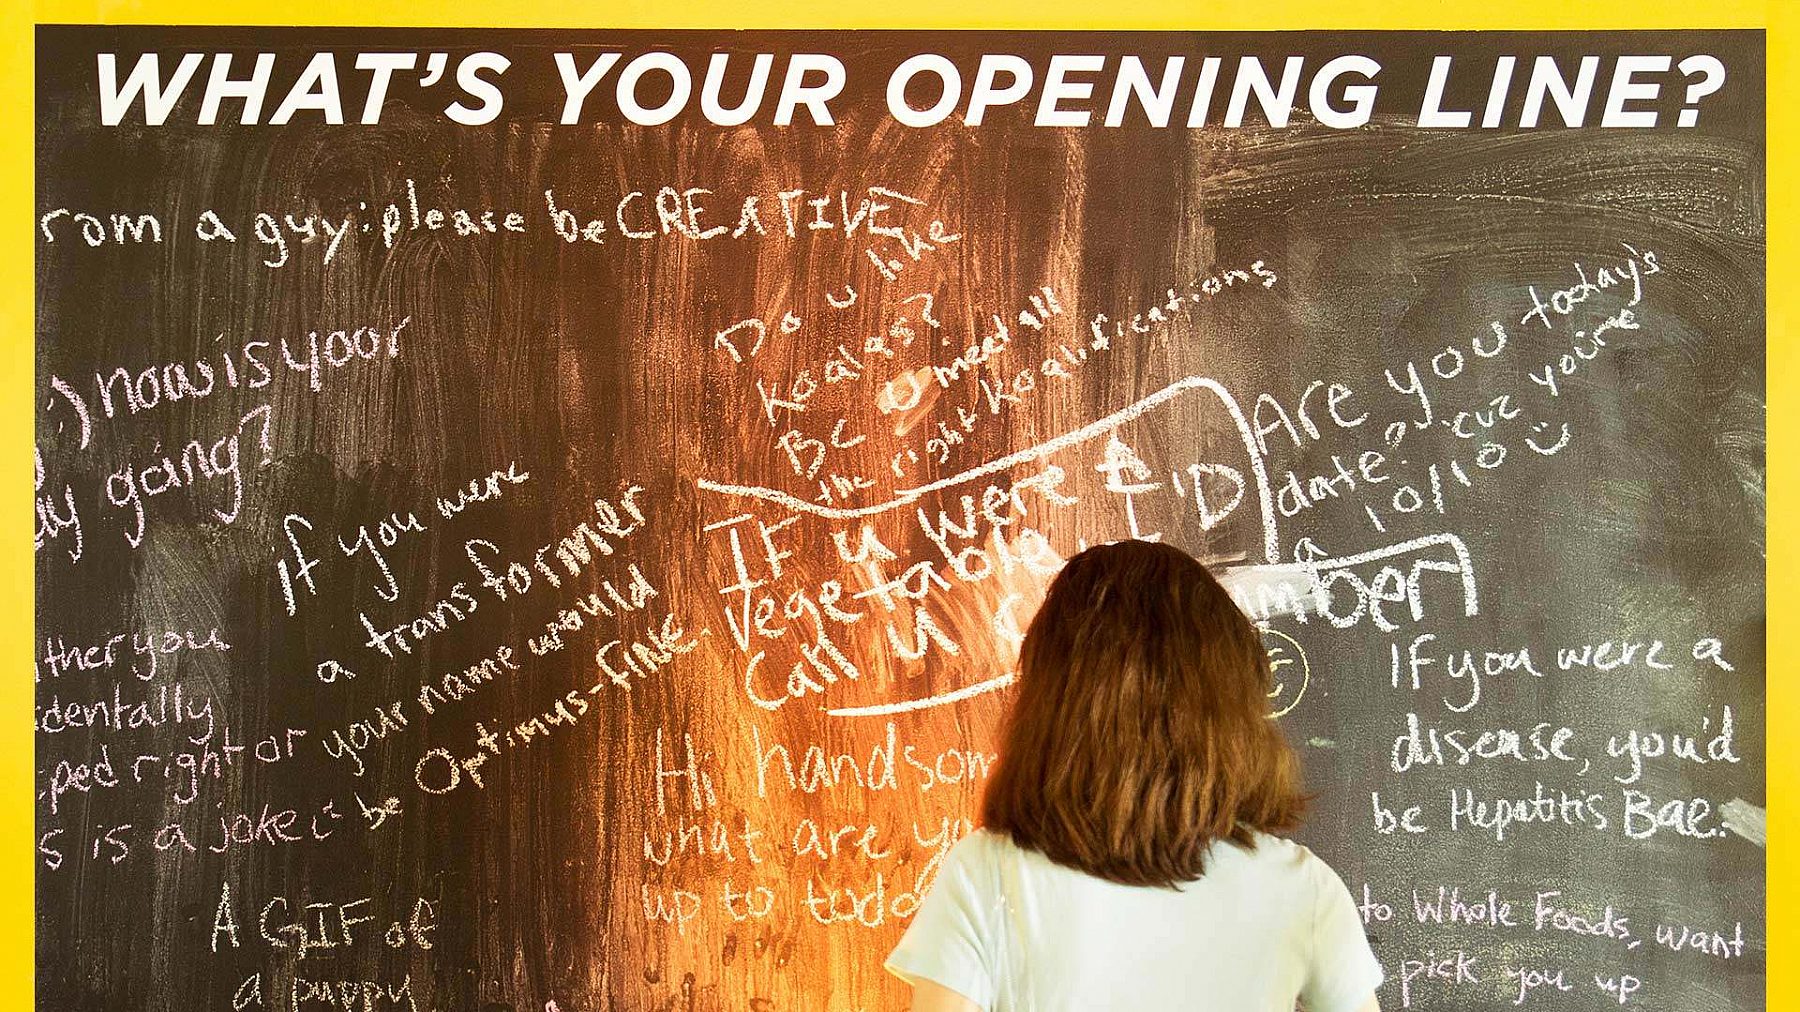 WHAT'S YOUR OPENING LINE?
rom a guy: please be CREATIVE
:) now is yoor
ay going?
Do u like
Koalas?
BC U meet all
the right Koalifications
Are you today's
date? cuz you're
a 10/10
If you were
a transformer
your name would
be Optimus-fine.
IF u were a
vegetable I'D
Call u
mber
ther you
identally
ped right or
s is a joke
Hi handsom
what are yo
up to toda
If you were a
disease, you'd
be Hepatitis Bae.
A GIF of
a puppy
to Whole Foods, want
pick you up